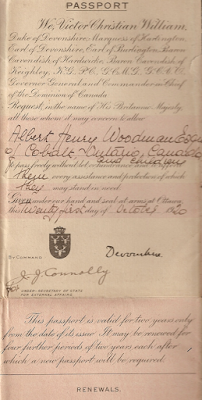 PASSPORT
We, Victor Christian William,
Duke of Devonshire, Marquess of Hartington,
Earl of Devonshire, Earl of Burlington, Baron
Cavendish of Hardwicke, Baron Cavendish of
Keighley, K.G., P.C., G.C.M.G., G.C.V.O.,
Governor General and Commander in Chief
of the Dominion of Canada
Request in the name of His Britannic Majesty
all those whom it may concern to allow
Albert Henry Woodman
of Cobalt, Ontario, Canada
and children
to pass freely without let or hindrance and to afford
them every assistance and protection of which
they may stand in need.
Given under our hand and seal at arms at Ottawa
this day of
Devonshire
BY COMMAND
J Connolly
UNDER-SECRETARY OF STATE
FOR EXTERNAL AFFAIRS.
This passport is valid for two years only
from the date of its issue. It may be renewed for
four further periods of two years each after
which a new passport will be required.
RENEWALS.